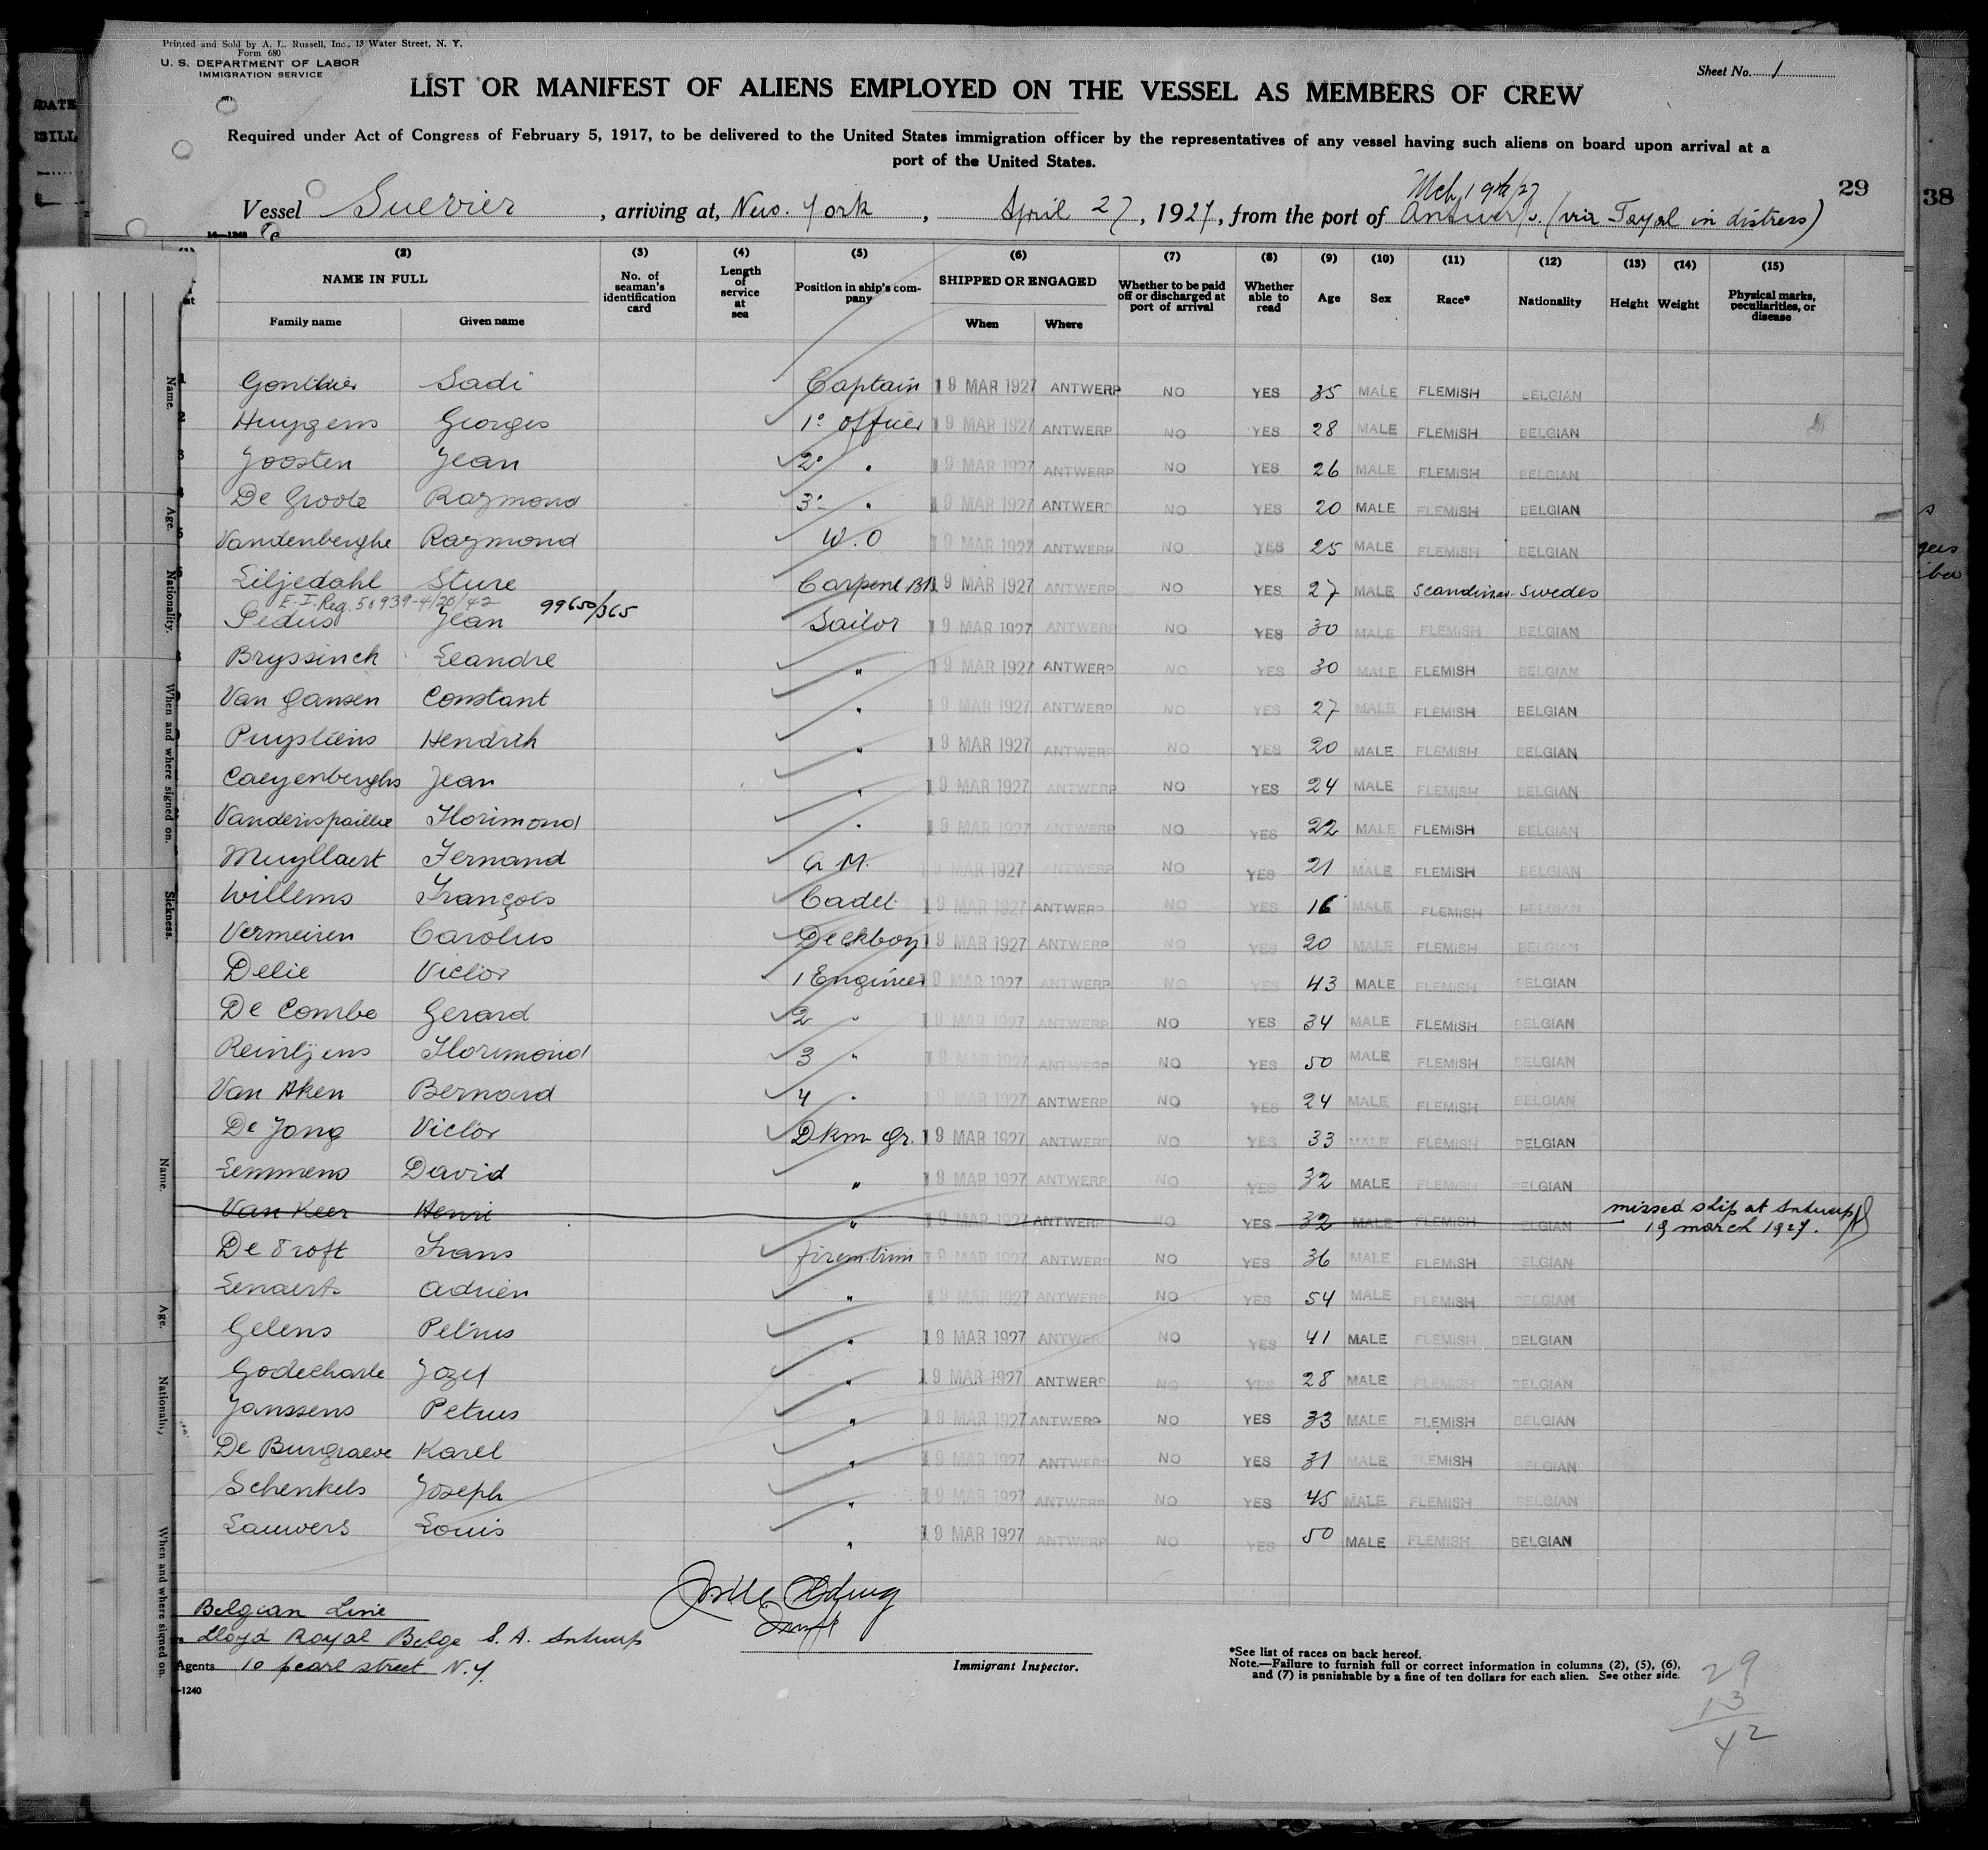 Printed and Sold by A. L. Russell, Inc., 13 Water Street, N. Y.
Form 680
U. S. DEPARTMENT OF LABOR
IMMIGRATION SERVICE
Sheet No. 1
LIST OR MANIFEST OF ALIENS EMPLOYED ON THE VESSEL AS MEMBERS OF CREW
Required under Act of Congress of February 5, 1917, to be delivered to the United States immigration officer by the representatives of any vessel having such aliens on board upon arrival at a
port of the United States.
Mch 19th/27
29
38
Vessel Suevier, arriving at, New. York, April 27, 1927, from the port of Antwerp. (via Fayal in distress)
(2) (3) (4) (5) (6) (7) (8) (9) (10) (11) (12) (13) (14) (15)
NAME IN FULL No. of seaman's identification card Length of service at sea Position in ship's company SHIPPED OR ENGAGED Whether to be paid off or discharged at port of arrival Whether able to read Age Sex Race* Nationality Height Weight Physical marks, peculiarities, or disease
Family name Given name When Where
1 Gonthier Sadi Captain 19 MAR 1927 ANTWERP NO YES 35 MALE FLEMISH BELGIAN
2 Huygens Georges 1° officer 19 MAR 1927 ANTWERP NO YES 28 MALE FLEMISH BELGIAN
3 Joosten Jean 2° " 19 MAR 1927 ANTWERP NO YES 26 MALE FLEMISH BELGIAN
De Groote Raymond 3° " 19 MAR 1927 ANTWERP NO YES 20 MALE FLEMISH BELGIAN
Vandenberghe Raymond W.O 19 MAR 1927 ANTWERP NO YES 25 MALE FLEMISH BELGIAN
Liljedahl Sture Carpent 19 MAR 1927 ANTWERP NO YES 27 MALE Scandinav. Swedes
E. I. Reg. 50939-4/20/42 99650/365
Pedus Jean Sailor 19 MAR 1927 ANTWERP NO YES 30 MALE FLEMISH BELGIAN
Bryssinck Leandre " 19 MAR 1927 ANTWERP NO YES 30 MALE FLEMISH BELGIAN
Van Gansen Constant " 19 MAR 1927 ANTWERP NO YES 27 MALE FLEMISH BELGIAN
Puystiens Hendrik " 19 MAR 1927 ANTWERP NO YES 20 MALE FLEMISH BELGIAN
Caeyenberghs Jean " 19 MAR 1927 ANTWERP NO YES 24 MALE FLEMISH BELGIAN
Florimond " 19 MAR 1927 ANTWERP NO YES 22 MALE FLEMISH BELGIAN
Muyllaert Fernand A M. 19 MAR 1927 ANTWERP NO YES 21 MALE FLEMISH BELGIAN
Willems François Cadet 19 MAR 1927 ANTWERP NO YES 16 MALE FLEMISH BELGIAN
Vermeiren Carolus Deckboy 19 MAR 1927 ANTWERP NO YES 20 MALE FLEMISH BELGIAN
Delie Victor 1 Engineer 19 MAR 1927 ANTWERP NO YES 43 MALE FLEMISH BELGIAN
De Combe Gerard 2 " 19 MAR 1927 ANTWERP NO YES 34 MALE FLEMISH BELGIAN
Reintjens Florimond 3 " 19 MAR 1927 ANTWERP NO YES 50 MALE FLEMISH BELGIAN
Van Aken Bernard 4 " 19 MAR 1927 ANTWERP NO YES 24 MALE FLEMISH BELGIAN
De Jong Victor Dkm Gr. 19 MAR 1927 ANTWERP NO YES 33 MALE FLEMISH BELGIAN
Lemmens David " 19 MAR 1927 ANTWERP NO YES 32 MALE FLEMISH BELGIAN
Van Keer Henri " 19 MAR 1927 ANTWERP NO YES 32 MALE FLEMISH BELGIAN missed ship at Antwerp
19 march 1927.
De Troft Frans firem.trim 19 MAR 1927 ANTWERP NO YES 36 MALE FLEMISH BELGIAN
Lenaerts Adrien " 19 MAR 1927 ANTWERP NO YES 54 MALE FLEMISH BELGIAN
Gelens Petrus " 19 MAR 1927 ANTWERP NO YES 41 MALE FLEMISH BELGIAN
Godecharle Jozef " 19 MAR 1927 ANTWERP NO YES 28 MALE FLEMISH BELGIAN
Janssens Petrus " 19 MAR 1927 ANTWERP NO YES 33 MALE FLEMISH BELGIAN
De Burgraeve Karel " 19 MAR 1927 ANTWERP NO YES 31 MALE FLEMISH BELGIAN
Schenkels Joseph " 19 MAR 1927 ANTWERP NO YES 45 MALE FLEMISH BELGIAN
Lauwers Louis " 19 MAR 1927 ANTWERP NO YES 50 MALE FLEMISH BELGIAN
Belgian Line
Lloyd Royal Belge S. A. Antwerp
Agents 10 pearl street N.Y.
-1240
Immigrant Inspector.
*See list of races on back hereof.
Note.—Failure to furnish full or correct information in columns (2), (5), (6),
and (7) is punishable by a fine of ten dollars for each alien. See other side.
29
13
42
Name.
Age.
Nationality.
When and where signed on.
Sickness.
Name.
Age.
Nationality,
When and where signed on.